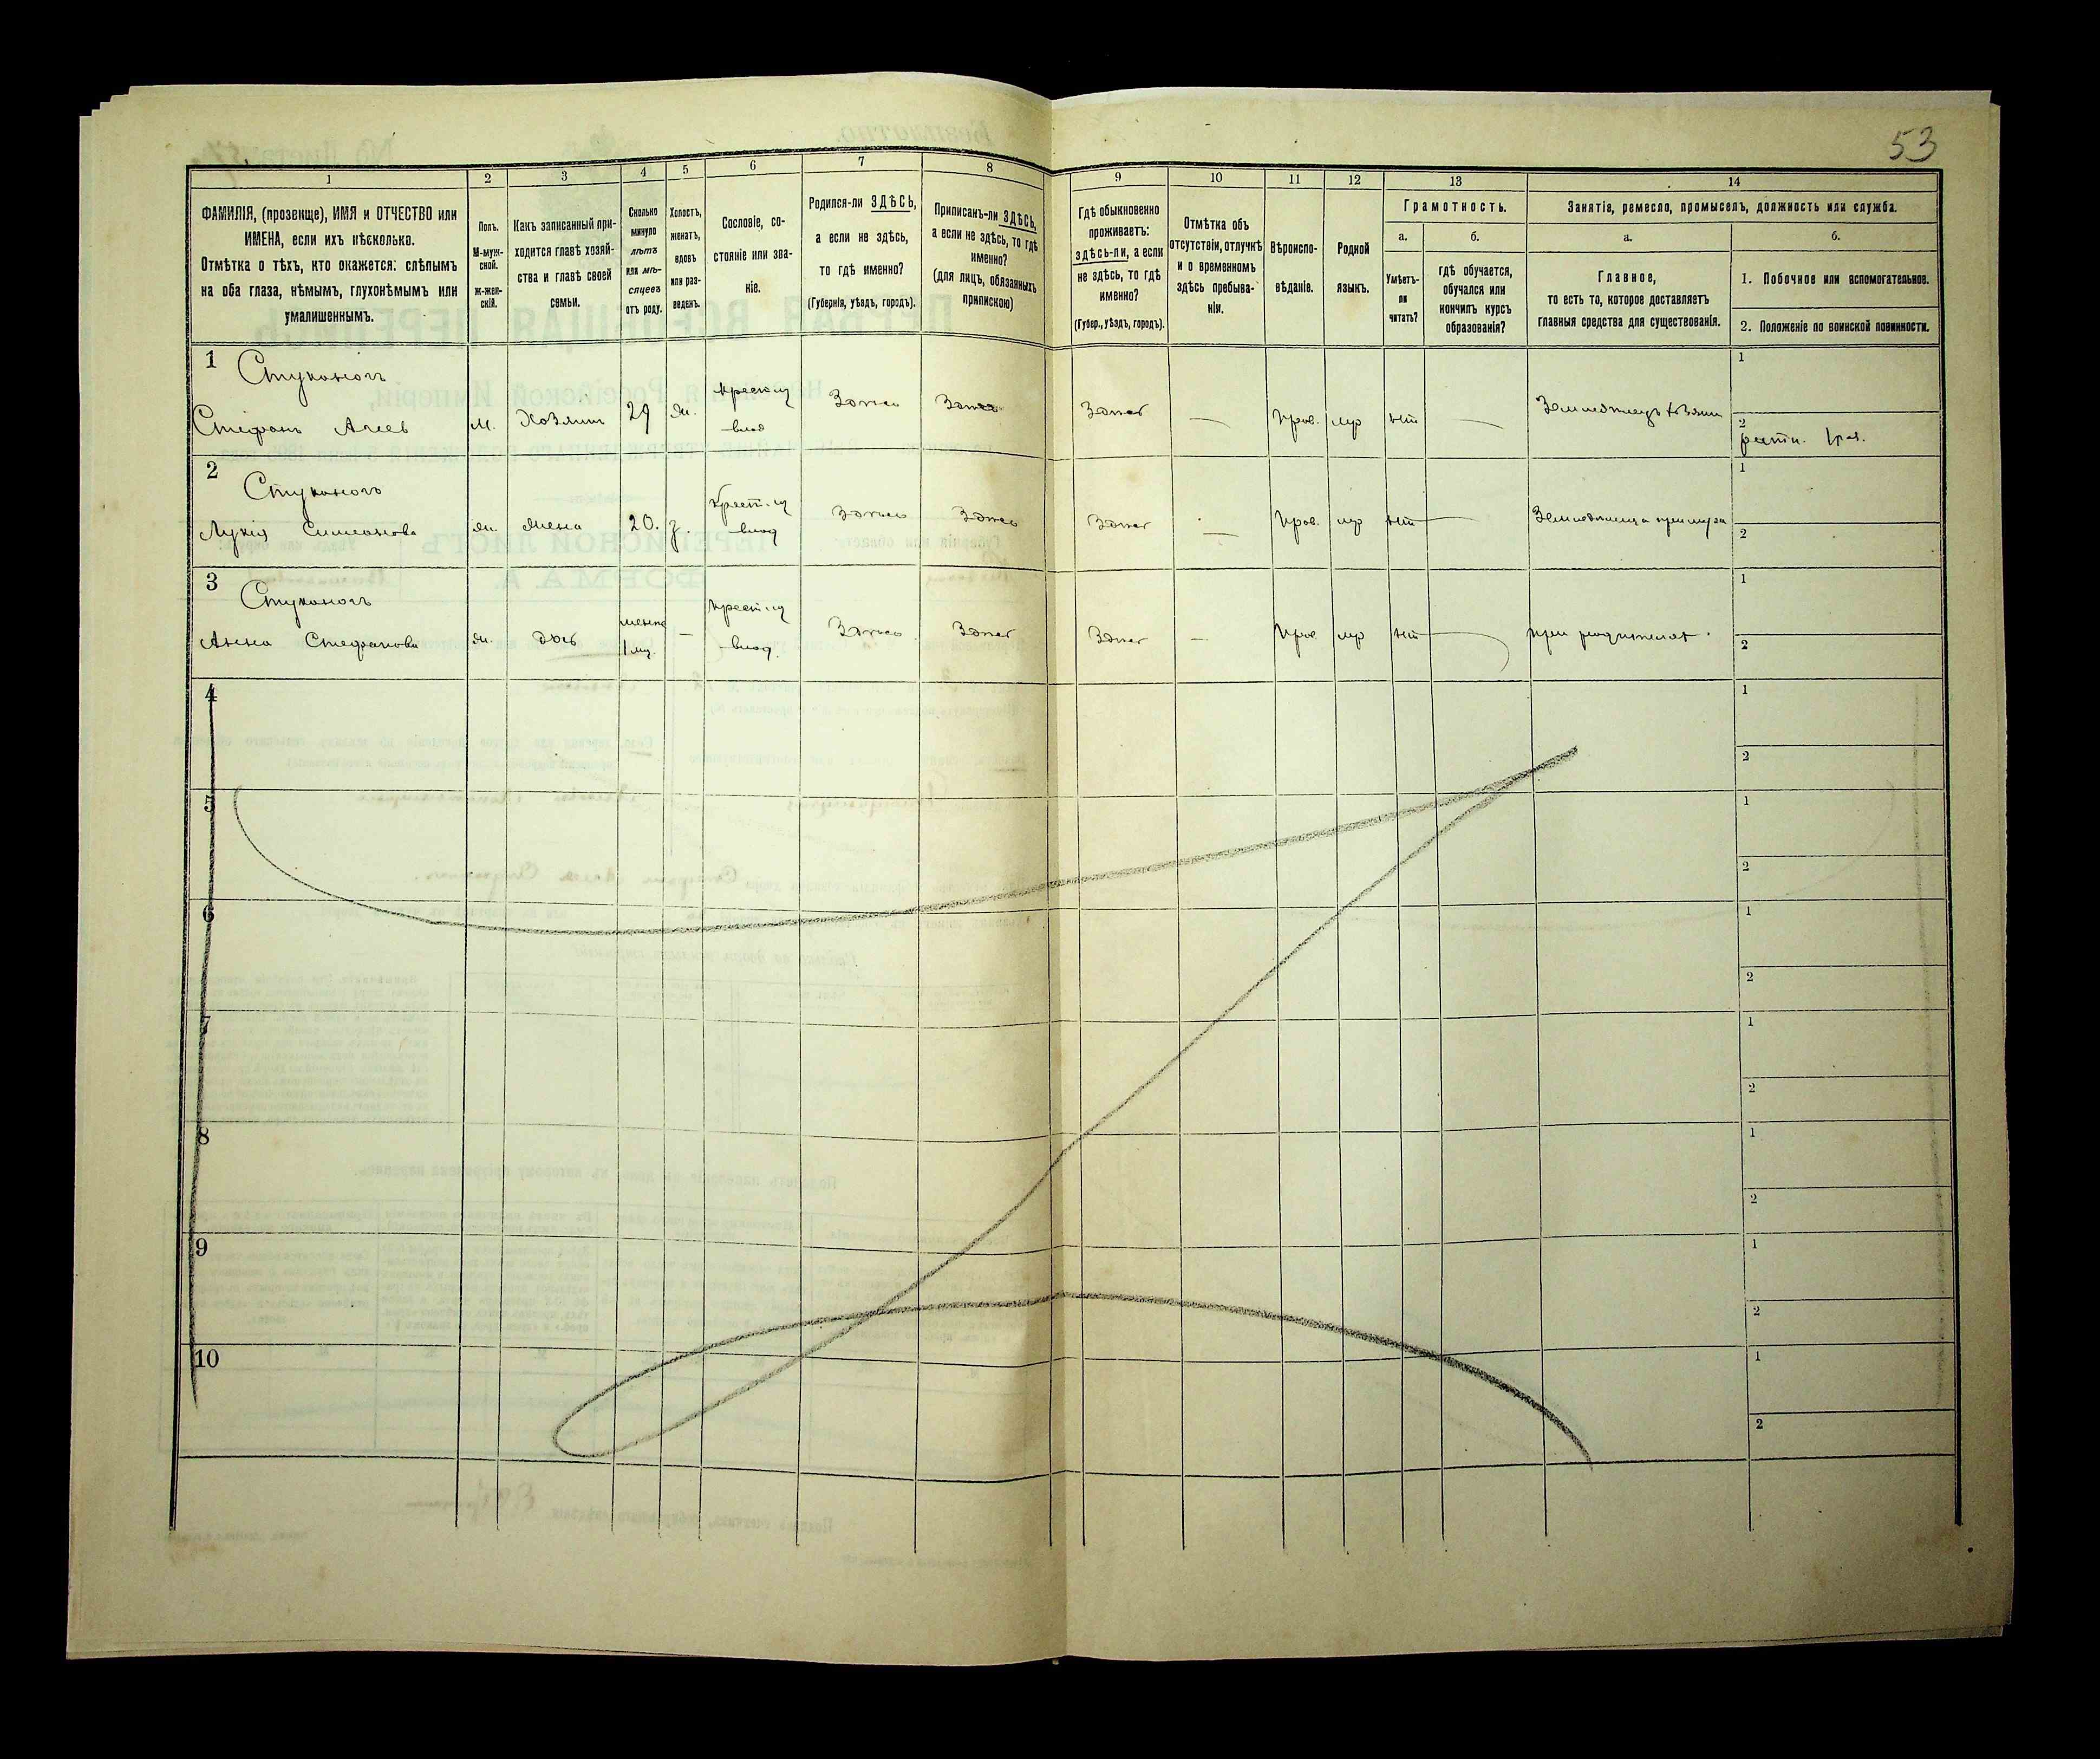 53
1
2
3
4
5
6
7
8
9
10
11
12
13
14
ФАМИЛІЯ, (прозвище), ИМЯ и ОТЧЕСТВО или
ИМЕНА, если ихъ нѣсколько.
Отмѣтка о тѣхъ, кто окажется: слѣпымъ
на оба глаза, нѣмымъ, глухонѣмымъ или
умалишеннымъ.
Полъ.
М-муж-
ской.
ж-жен-
скій.
Какъ записанный при-
ходится главѣ хозяй-
ства и главѣ своей
семьи.
Сколько
минуло
лѣтъ
или мѣ-
сяцевъ
отъ роду.
Холостъ,
женатъ,
вдовъ
или раз-
веденъ.
Сословіе, со-
стояніе или зва-
ніе.
Родился-ли ЗДѢСЬ,
а если не здѣсь,
то гдѣ именно?
(Губернія, уѣздъ, городъ).
Приписанъ-ли ЗДѢСЬ,
а если не здѣсь, то гдѣ
именно?
(для лицъ, обязанныхъ
припискою)
Гдѣ обыкновенно
проживаетъ:
здѣсь-ли, а если
не здѣсь, то гдѣ
именно?
(Губер., уѣздъ, городъ).
Отмѣтка объ
отсутствіи, отлучкѣ
и о временномъ
здѣсь пребыва-
ніи.
Вѣроиспо-
вѣданіе.
Родной
языкъ.
Грамотность.
а.
б.
Умѣетъ-
ли
читать?
гдѣ обучается,
обучался или
кончилъ курсъ
образованія?
Занятіе, ремесло, промыселъ, должность или служба.
а.
б.
Главное,
то есть то, которое доставляетъ
главныя средства для существованія.
1. Побочное или вспомогательное.
2. Положеніе по воинской повинности.
1 Стуконогъ
Стефанъ Агеев м. Хозяинъ 29 ж. крест. из влад Здѣсь Здѣсь Здѣсь — Прав. мр нт — Земледѣлецъ хозяин
1
2
ратн. 1 раз.
2 Стуконогъ
Лукія Симеонова ж. жена 20. з. Крест. из влад Здѣсь Здѣсь Здѣсь — Прав. мр нт — Земледѣлица при мужѣ
1
2
3 Стуконогъ
Анна Стефанова ж. дочь менѣе 1 мц. — крест. из влад. Здѣсь Здѣсь Здѣсь — Прав мр нт — при родителях
1
2
4
1
2
5
1
2
6
1
2
7
1
2
8
1
2
9
1
2
10
1
2